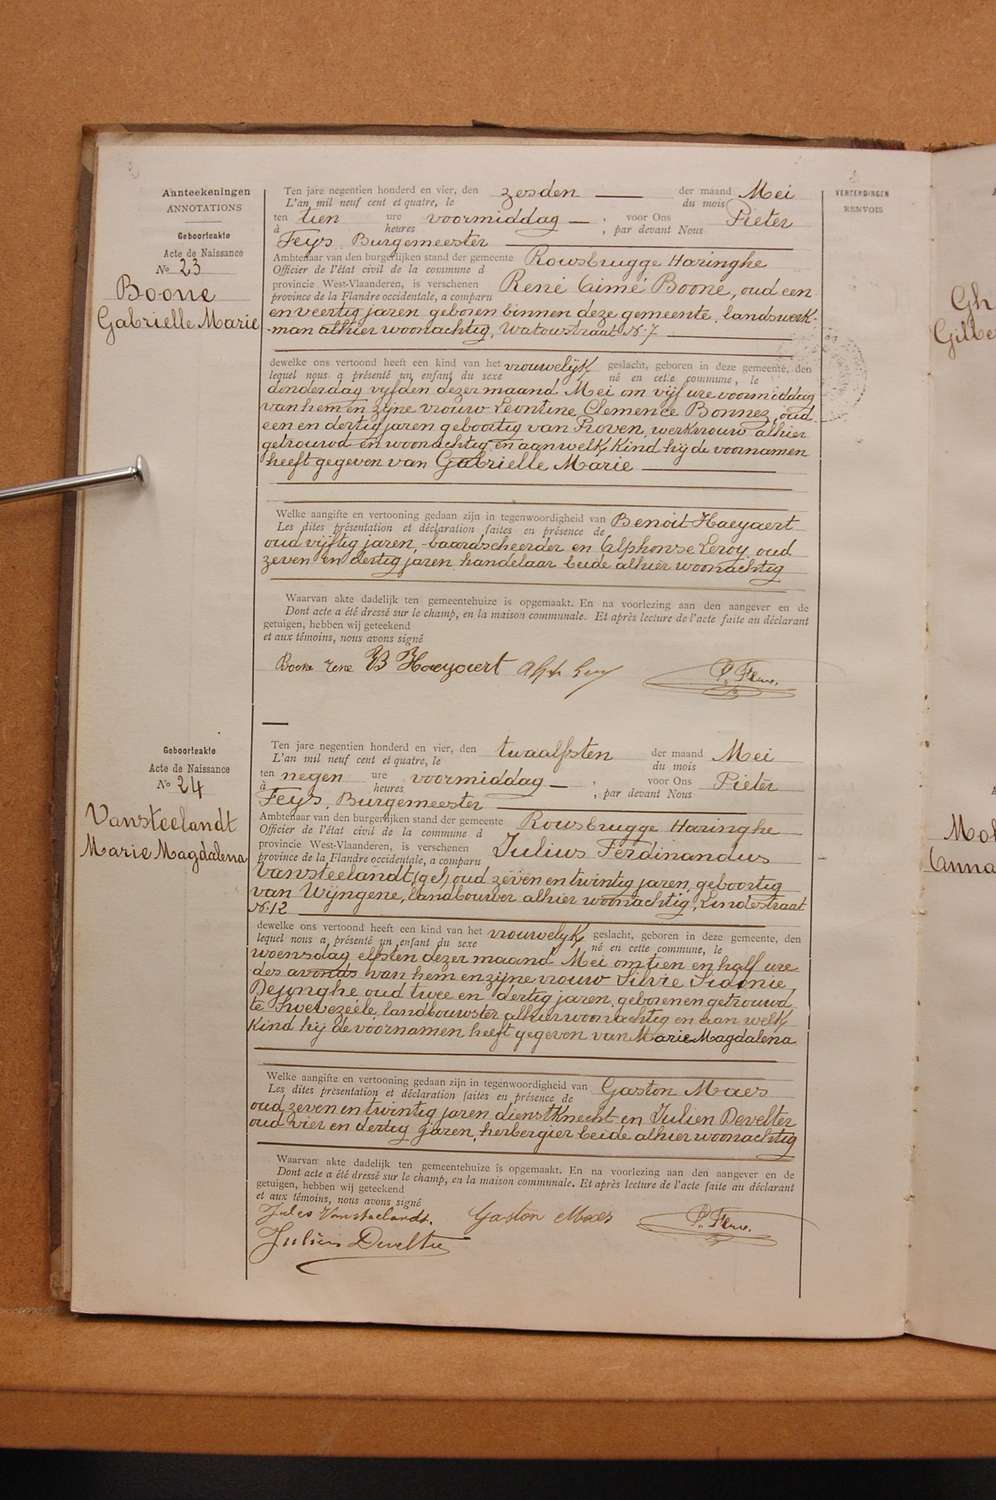 Aanteekeningen
ANNOTATIONS
VERZENDINGEN
RENVOIS
Geboorteakte
Acte de Naissance
No 23
Boone
Gabrielle Marie
Ten jare negentien honderd en vier, den zesden der maand Mei
L'an mil neuf cent et quatre, le du mois
ten tien ure voormiddag ; voor Ons Pieter
à heures , par devant Nous
Feys, Burgemeester
Ambtenaar van den burgerlijken stand der gemeente Rousbrugge Haringhe
Officier de l'état civil de la commune d
provincie West-Vlaanderen, is verschenen René Aimé Boone, oud een
province de la Flandre occidentale, a comparu
en veertig jaren geboren binnen deze gemeente, landswerk-
man alhier woonachtig, Watoustraat N. 7
dewelke ons vertoond heeft een kind van het vrouwelijk geslacht, geboren in deze gemeente, den
lequel nous a présenté un enfant du sexe né en cette commune, le
donderdag vyfden dezer maand Mei om vijf ure voormiddag
van hem en zijne vrouw Leontine Clemence Bonnez, oud
een en dertig jaren geboortig van Proven, werkvrouw alhier
getrouwd en woonachtig en aan welk Kind hij de voornamen
heeft gegeven van Gabrielle Marie
Welke aangifte en vertooning gedaan zijn in tegenwoordigheid van Benoit Haeyaert
Les dites présentation et déclaration faites en présence de
oud vijftig jaren, baardscheerder en Alphonse Leroy oud
zeven en dertig jaren handelaar beide alhier woonachtig
Waarvan akte dadelijk ten gemeentehuize is opgemaakt. En na voorlezing aan den aangever en de
Dont acte a été dressé sur le champ, en la maison communale. Et après lecture de l'acte faite au déclarant
getuigen, hebben wij geteekend
et aux témoins, nous avons signé
Boone Rene B Haeyaert Alph Leroy P. Feys.
Geboorteakte
Acte de Naissance
No 24
Vansteelandt
Marie Magdalena
Ten jare negentien honderd en vier, den twaalfsten der maand Mei
L'an mil neuf cent et quatre, le du mois
ten negen ure voormiddag ; voor Ons Pieter
à heures , par devant Nous
Feys, Burgemeester
Ambtenaar van den burgerlijken stand der gemeente Rousbrugge Haringhe
Officier de l'état civil de la commune d
provincie West-Vlaanderen, is verschenen Julius Ferdinandus
province de la Flandre occidentale, a comparu
Vansteelandt (get) oud zeven en twintig jaren, geboortig
van Wijngene, landbouwer alhier woonachtig, Lindestraat
N. 12
dewelke ons vertoond heeft een kind van het vrouwelijk geslacht, geboren in deze gemeente, den
lequel nous a présenté un enfant du sexe né en cette commune, le
woensdag elfsten dezer maand Mei om tien en half ure
des avonds van hem en zijne vrouw Silvie Sidonie,
Dejonghe oud twee en dertig jaren, geboren en getrouwd
te Swevezeele, landbouwster alhier woonachtig en aan welk
Kind hij de voornamen heeft gegeven van Marie Magdalena
Welke aangifte en vertooning gedaan zijn in tegenwoordigheid van Gaston Maes
Les dites présentation et déclaration faites en présence de
oud zeven en twintig jaren dienstknecht en Julien Develter
oud vier en dertig jaren, herbergier beide alhier woonachtig
Waarvan akte dadelijk ten gemeentehuize is opgemaakt. En na voorlezing aan den aangever en de
Dont acte a été dressé sur le champ, en la maison communale. Et après lecture de l'acte faite au déclarant
getuigen, hebben wij geteekend
et aux témoins, nous avons signé
Jules Vansteelandt. Gaston Maes P. Feys.
Julien Develter
Gh
Gilbe
Mol
Anna